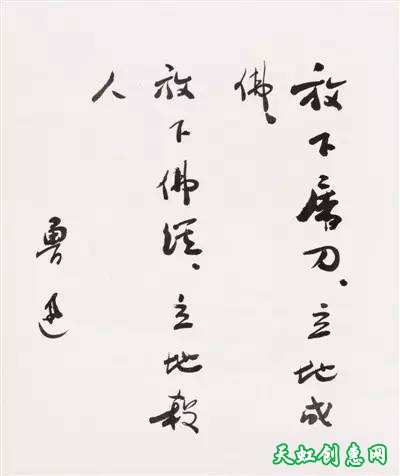 放下屠刀、立地成
佛、
放下佛経、立地殺
人
魯迅
天虹创惠网